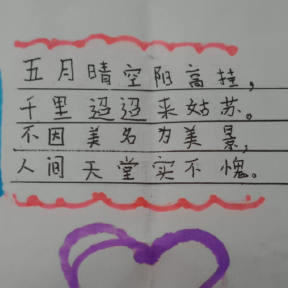 五月晴空阳高挂,
千里迢迢来姑苏。
不因美名为美景,
人间天堂实不愧。